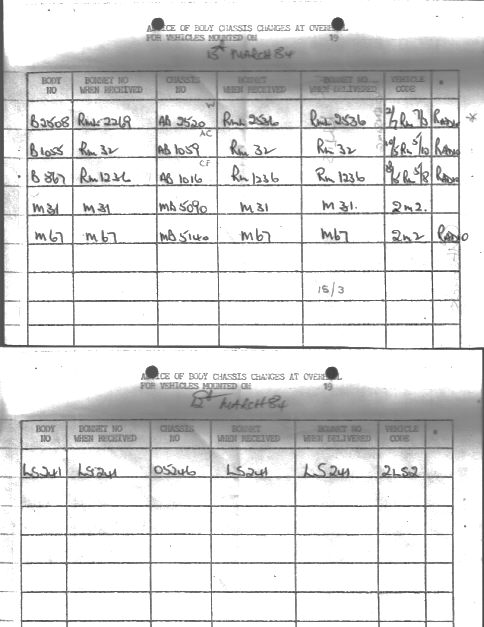 ADVICE OF BODY CHASSIS CHANGES AT OVERHAUL
FOR VEHICLES MOUNTED ON 19
13th MARCH 84
BODY NO BONNET NO WHEN RECEIVED CHASSIS NO BONNET WHEN RECEIVED BONNET NO WHEN DELIVERED VEHICLE CODE *
W
B2508 RML 2269 AB 2520 RML 2536 RML 2536 2/7 RM 7/3 RADIO
AC
B1055 RM 32 AB 1059 RM 32 RM 32 RM 5/10 RADIO
CF
B 867 RM 1236 AB 1016 RM 1236 RM 1236 RM 5/8 RADIO
M31 M31 MB5090 M31 M31. 2M2.
M67 M67 MB5140 M67 M67 2M2 RADIO
15/3
ADVICE OF BODY CHASSIS CHANGES AT OVERHAUL
FOR VEHICLES MOUNTED ON 19
12th MARCH 84
BODY NO BONNET NO WHEN RECEIVED CHASSIS NO BONNET WHEN RECEIVED BONNET NO WHEN DELIVERED VEHICLE CODE *
LS241 LS241 05246 LS241 LS241 2LS2